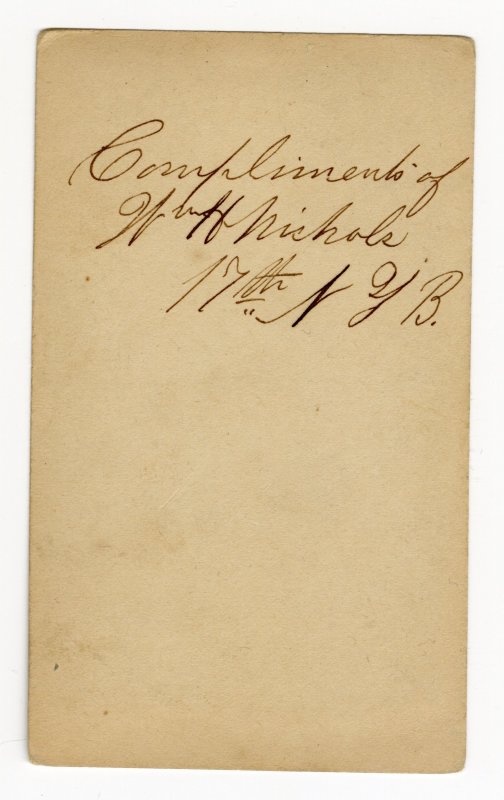 Compliments of
Wm H Nichols
17th N Y B.